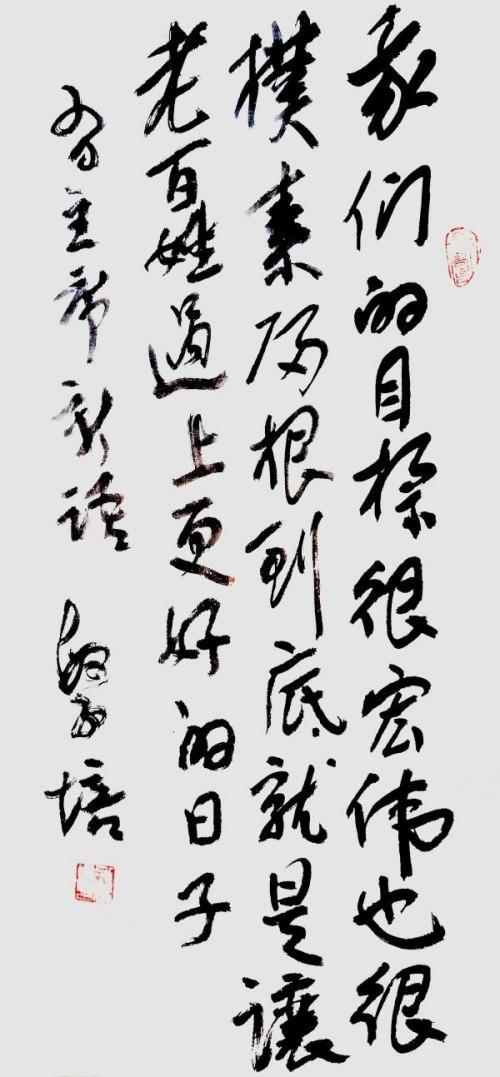 我们的目标很宏伟也很
樸素归根到底就是讓
老百姓過上更好的日子
习主席新语 培